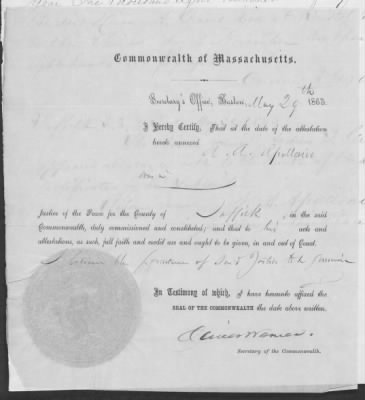 Commonwealth of Massachusetts.
Secretary's Office, Boston, May 29th 1863.
I Hereby Certify, That at the date of the attestation
hereto annexed
was a
Justice of the Peace for the County of Suffolk, in the said
Commonwealth, duly commissioned and constituted; and that to his acts and
attestations, as such, full faith and credit are and ought to be given, in and out of Court.
of said Justice
In Testimony of which, I have hereunto affixed the
SEAL OF THE COMMONWEALTH the date above written.
Oliver Warner.
Secretary of the Commonwealth.